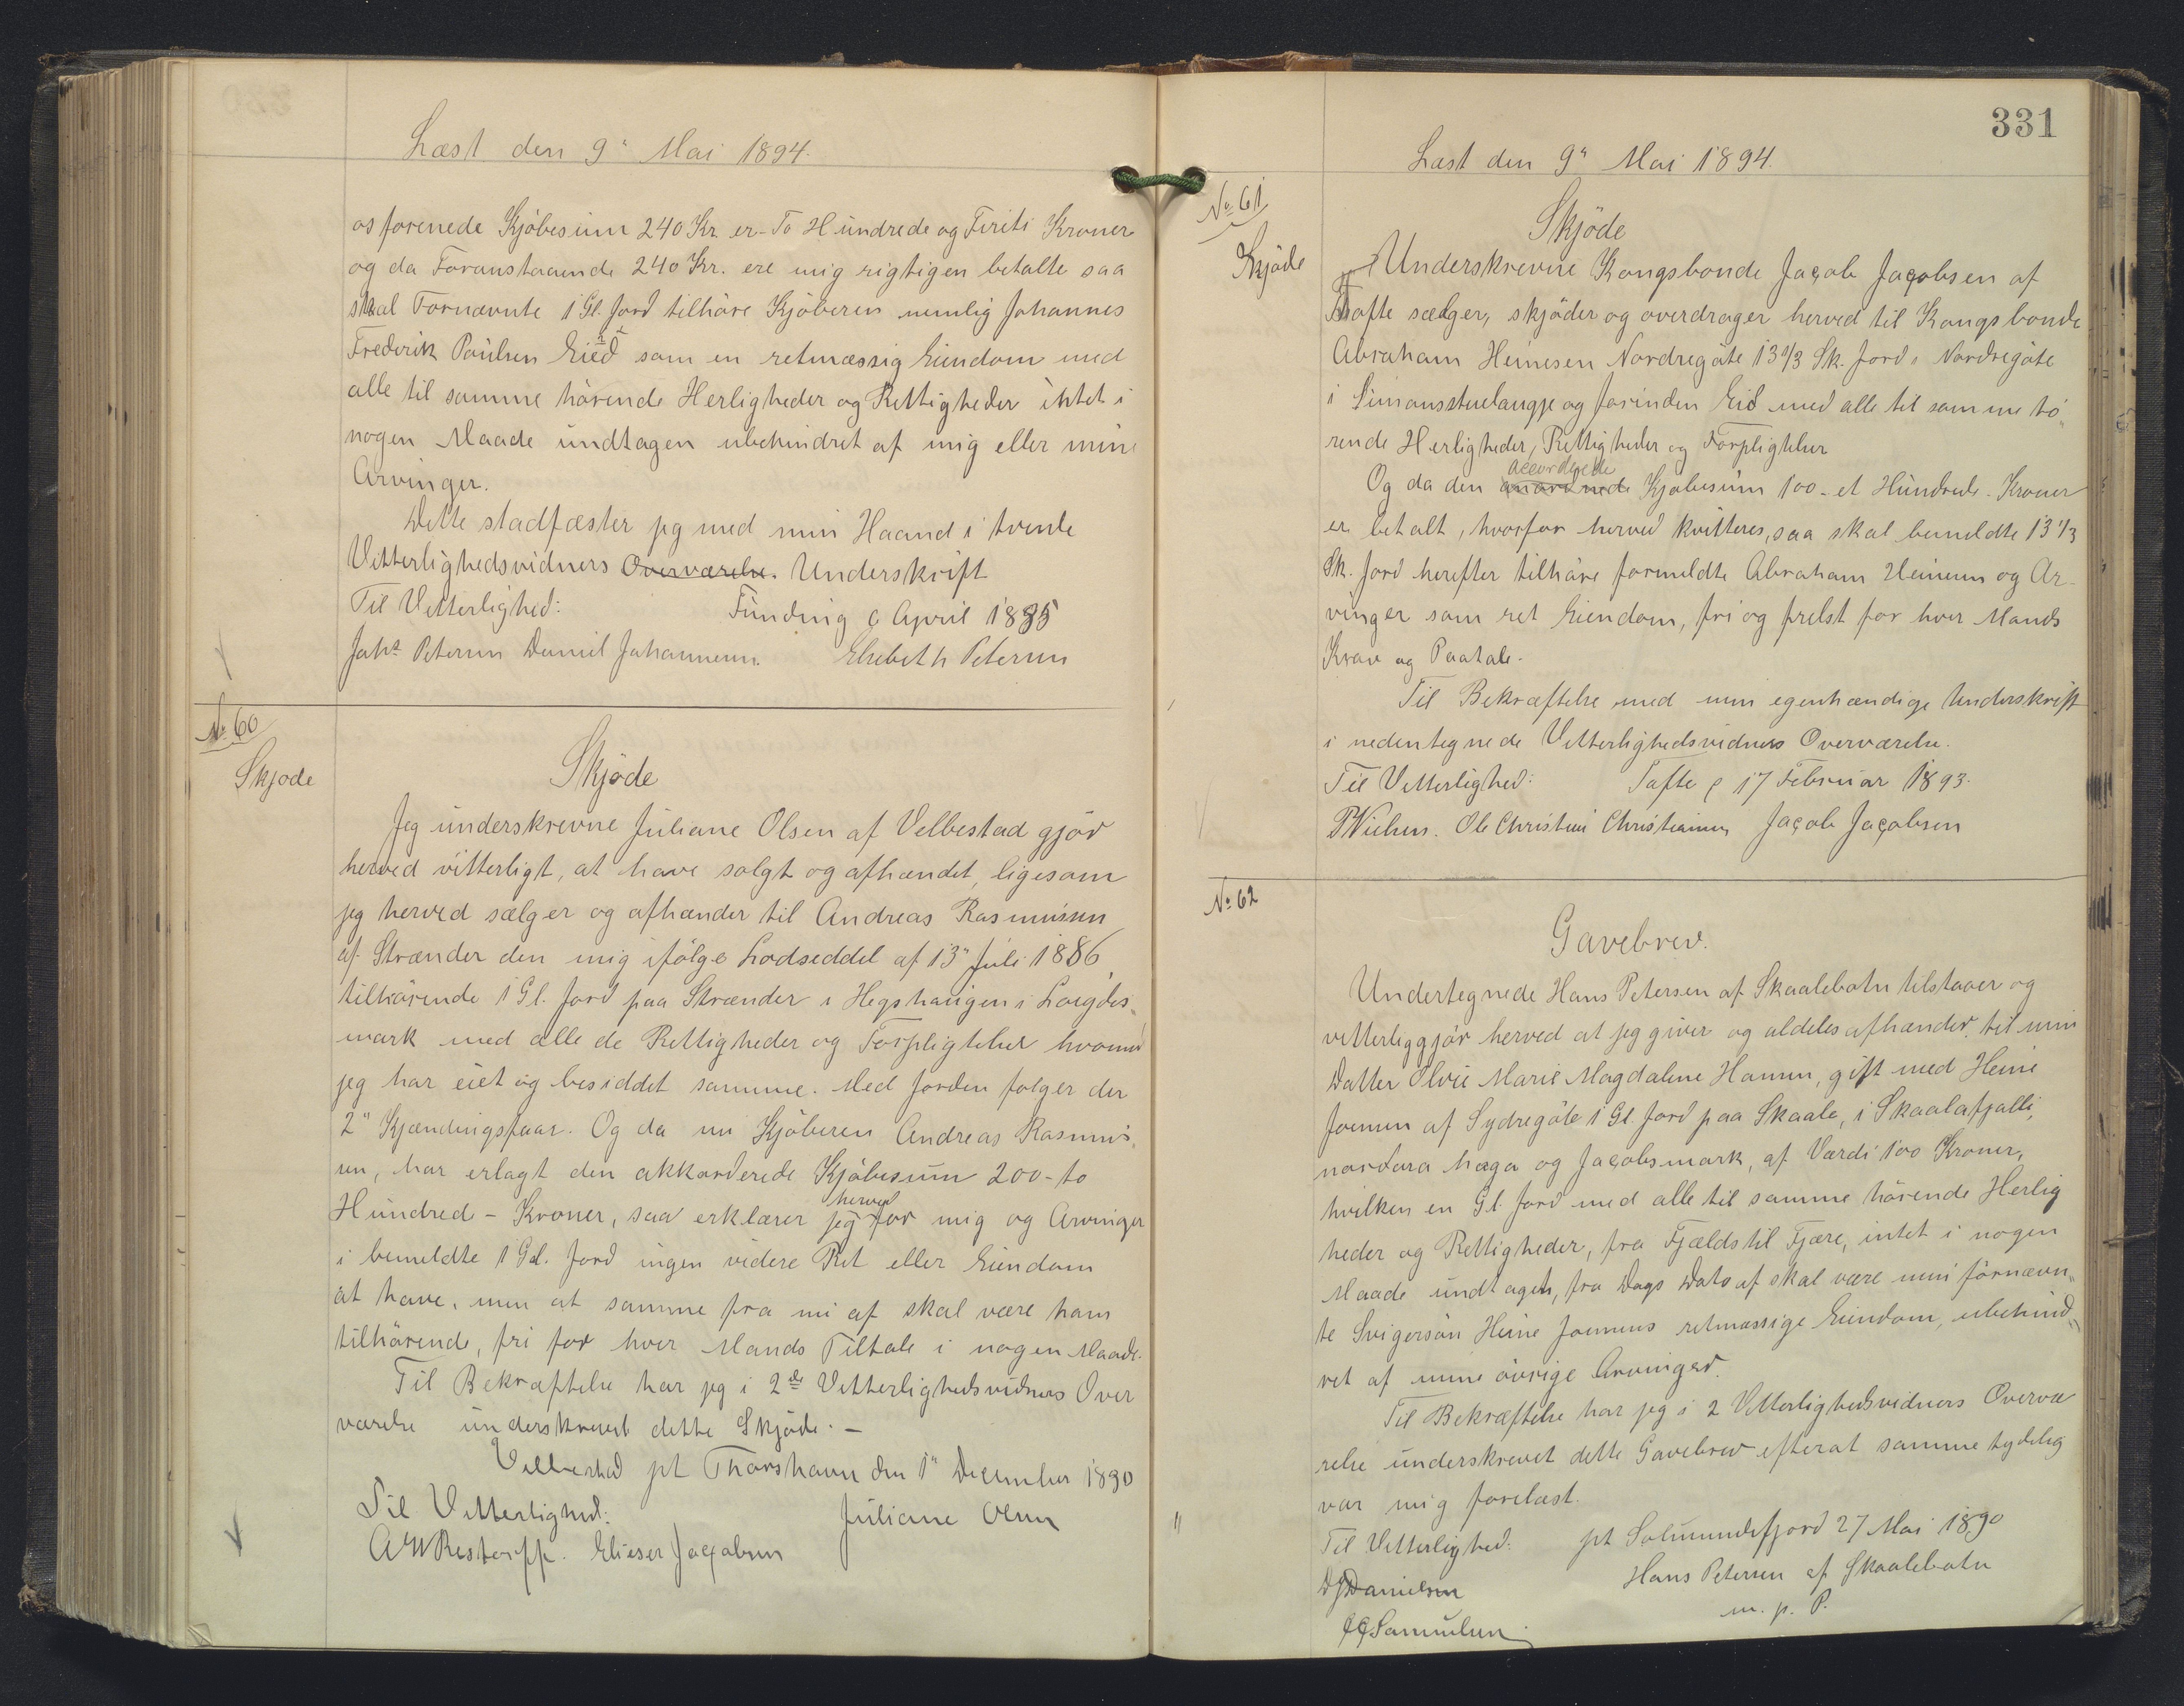 Læst den 9" Mai 1894.
os forenede Kjöbesum 240 Kr. er - To Hundrede og Firiti Kroner
og da Foranstaaende 240 Kr. ere mig rigtigen betalte saa
skal Fornævnte 1 Gl. Jord tilhöre Kjöberen nemlig Johannes
Frederik Poulsen Eied som en retmæssig Eiendom med
alle til samme hörende Herligheder og Rettigheder intet i
nogen Maade undtagen ubehindret af mig eller mine
Arvinger.
Dette stadfæster jeg med min Haand i tvende
Vitterlighedsvidners Overværelse. Underskrift
Til Vitterlighed: Funding 6 April 1885
Johs Petersen Daniel Johannesen. Elsebeth Petersen
No. 60
Skjöde
Skjöde
Jeg underskrevne Juliane Olsen af Velbestad gjör
herved vitterligt, at have solgt og afhændet, ligesom
jeg herved sælger og afhænder til Andreas Rasmussen
af Strænder den mig ifölge Lodseddel af 13" Juli 1886
tilhörende 1 Gl. Jord paa Strænder i Hegshaugen i Loegdes„
mark med alle de Rettigheder og Forpligtelser hvormed
jeg har eiet og besiddet samme. Med Jorden følger der
2" Kjændingsfaar. Og da nu Kjöberen Andreas Rasmus„
sen, har erlagt den akkorderede Kjöbesum 200 - to
Hundred - Kroner, saa erklærer jeg herved for mig og Arvinger
i bemeldte 1 Gl. Jord ingen videre Ret eller Eiendom
at have, men at samme fra nu af skal være ham
tilhörende, fri for hver Mands Tiltale i nogen Maade.
Til Bekræftelse har jeg i 2de Vitterlighedsvidners Over
værelse underskrevet dette Skjöde. -
Velbestad pt Thorshavn den 1" December 1890
Til Vitterlighed: Juliane Olsen
A W Restorff. Elieser Jacobsen
331
Læst den 9" Mai 1894.
No. 61
Skjöde
Skjöde
Underskrevne Kongsbonde Jacob Jacobsen af
Tofte sælger, skjöder og overdrager herved til Kongsbonde
Abraham Heinesen Nordregöte 13 1/3 Sk. Jord i Nordregöte
i Simonsstuelangje og forinden Eid med alle til samme hö„
rende Herligheder, Rettigheder og Forpligtelser
Og da den anordnede accorderede Kjöbesum 100 - et Hundrede - Kroner
er betalt, hvorfor herved kvitteres, saa skal bemeldte 13 1/3
Sk. Jord herefter tilhöre formeldte Abraham Heinesen og Ar-
vinger som ret Eiendom, fri og frelst for hver Mands
Krav og Paatale.
Til Bekræftelse med min egenhændige Underskrift
i nedentegnede Vitterlighedsvidners Overværelse.
Til Vitterlighed: Tofte p 17 Februar 1893.
P Nielsen. Ole Christian Christiansen Jacob Jacobsen
No. 62
Gavebrev.
Undertegnede Hans Petersen af Skaalebotn tilstaaer og
vitterliggjör herved at jeg giver og aldeles afhænder til min
Datter Olvie Marie Magdalene Hansen, gift med Heine
Joensen af Sydregöte 1 Gl. Jord paa Skaale, i Skaalafjalli,
nordara haga og Jacobsmark, af Værdi 100 Kroner,
hvilken en Gl. Jord med alle til samme hörende Herlig
heder og Rettigheder, fra Fjælds til Fjære, intet i nogen
Maade undtagen, fra Dags Dato af skal være min fornævn„
te Svigersön Heine Joensens retmæssige Eiendom, ubehind„
ret af mine övrige Arvinger.
Til Bekræftelse har jeg i 2 Vitterlighedsvidners Overvæ
relse underskrevet dette Gavebrev efterat samme tydelig
var mig forelæst.
Til Vitterlighed: pt Solmundefjord 27 Mai 1890
DJDanielsen Hans Petersen af Skaalebotn
JJSamuelsen m. p. P.